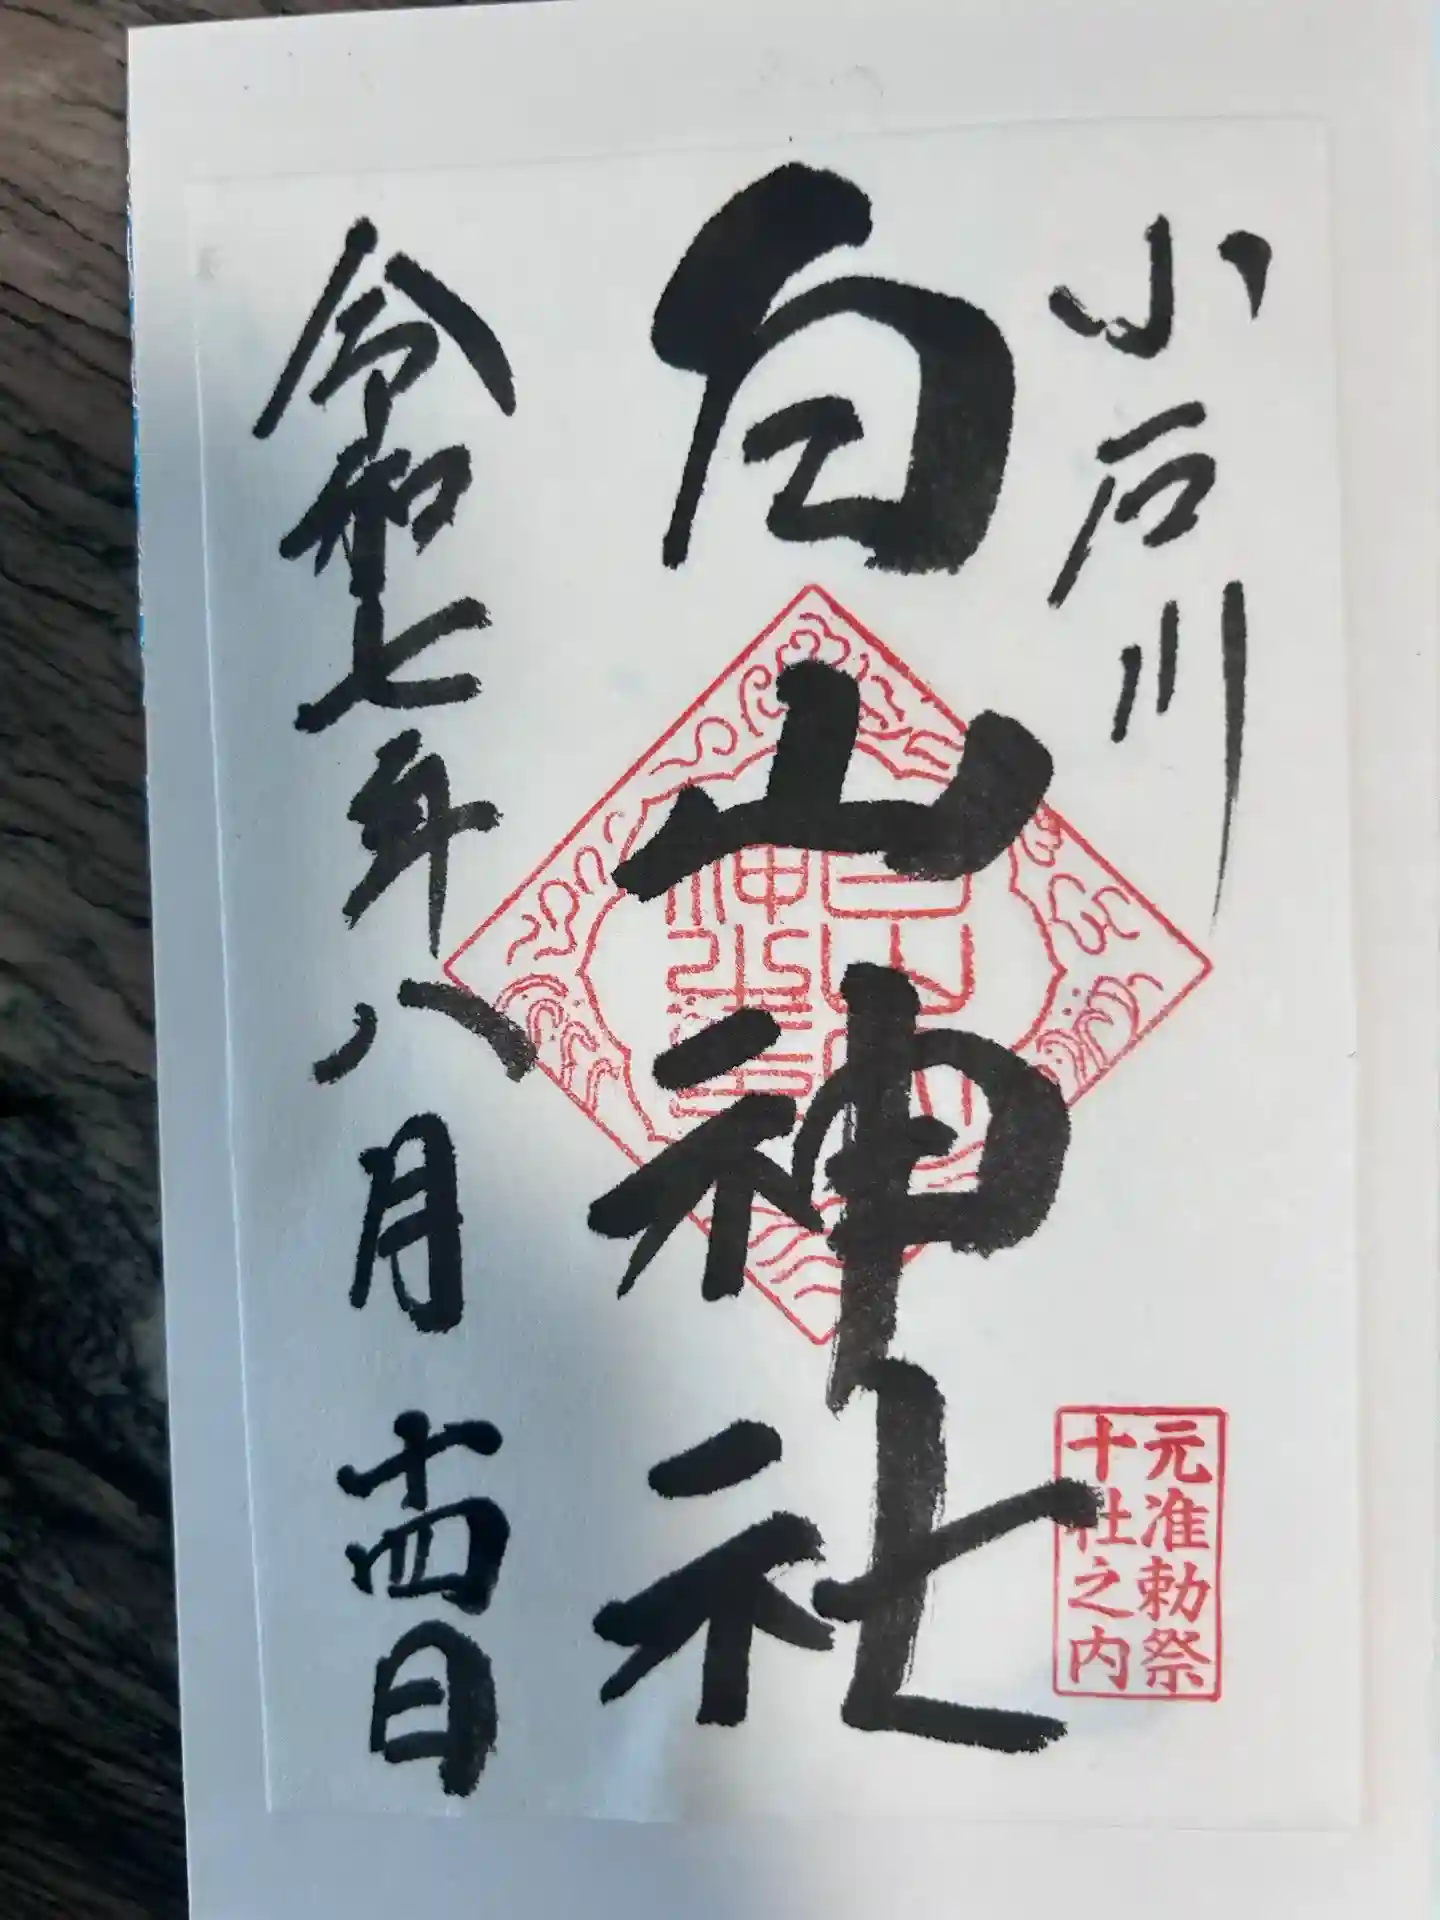 小石川
白山神社
元准勅祭
十社之内
令和七年八月十四日